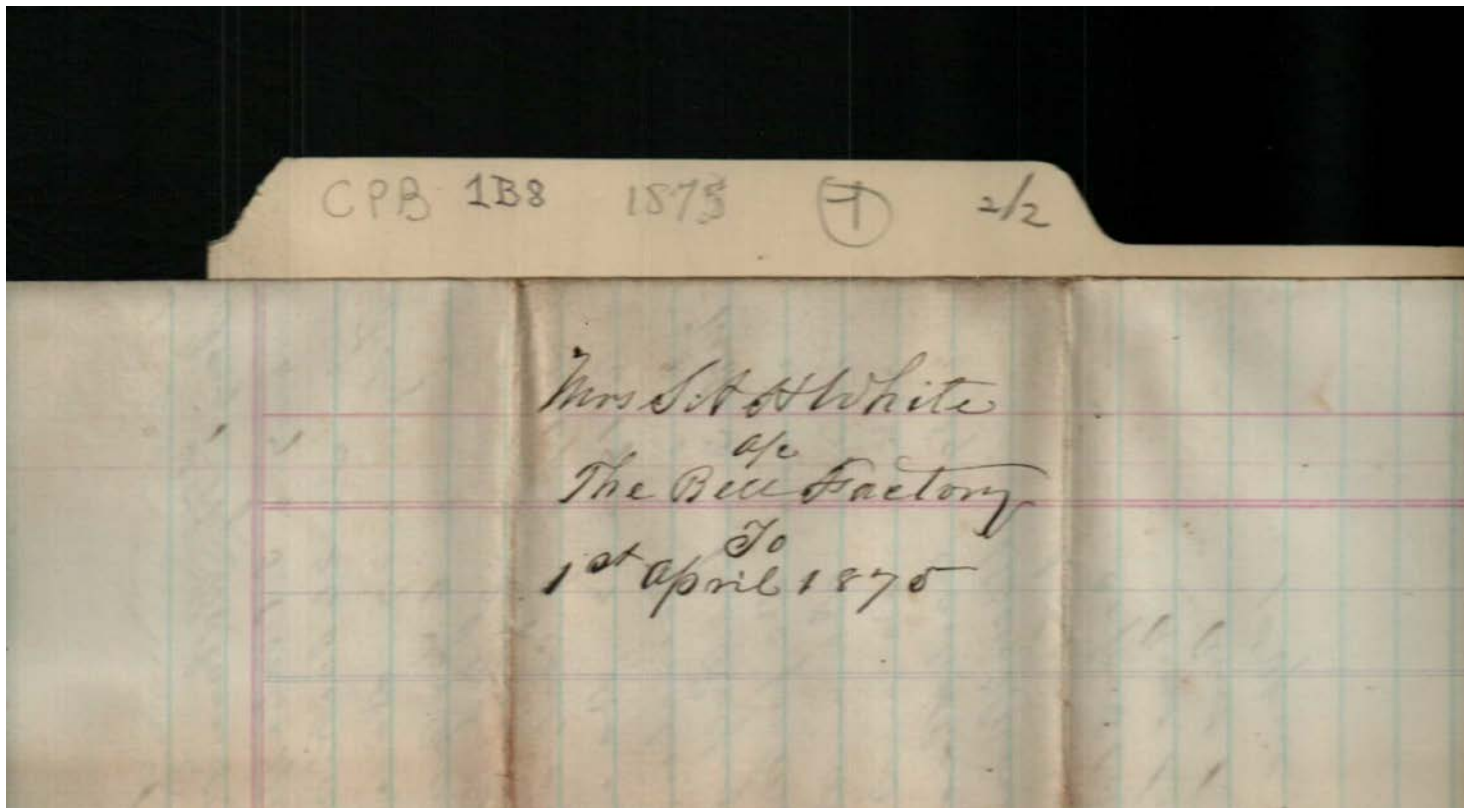 CPB 1B8 1875 T 2/2
Mrs S A H White
a/c
The Bell Factory
To
1st April 1875